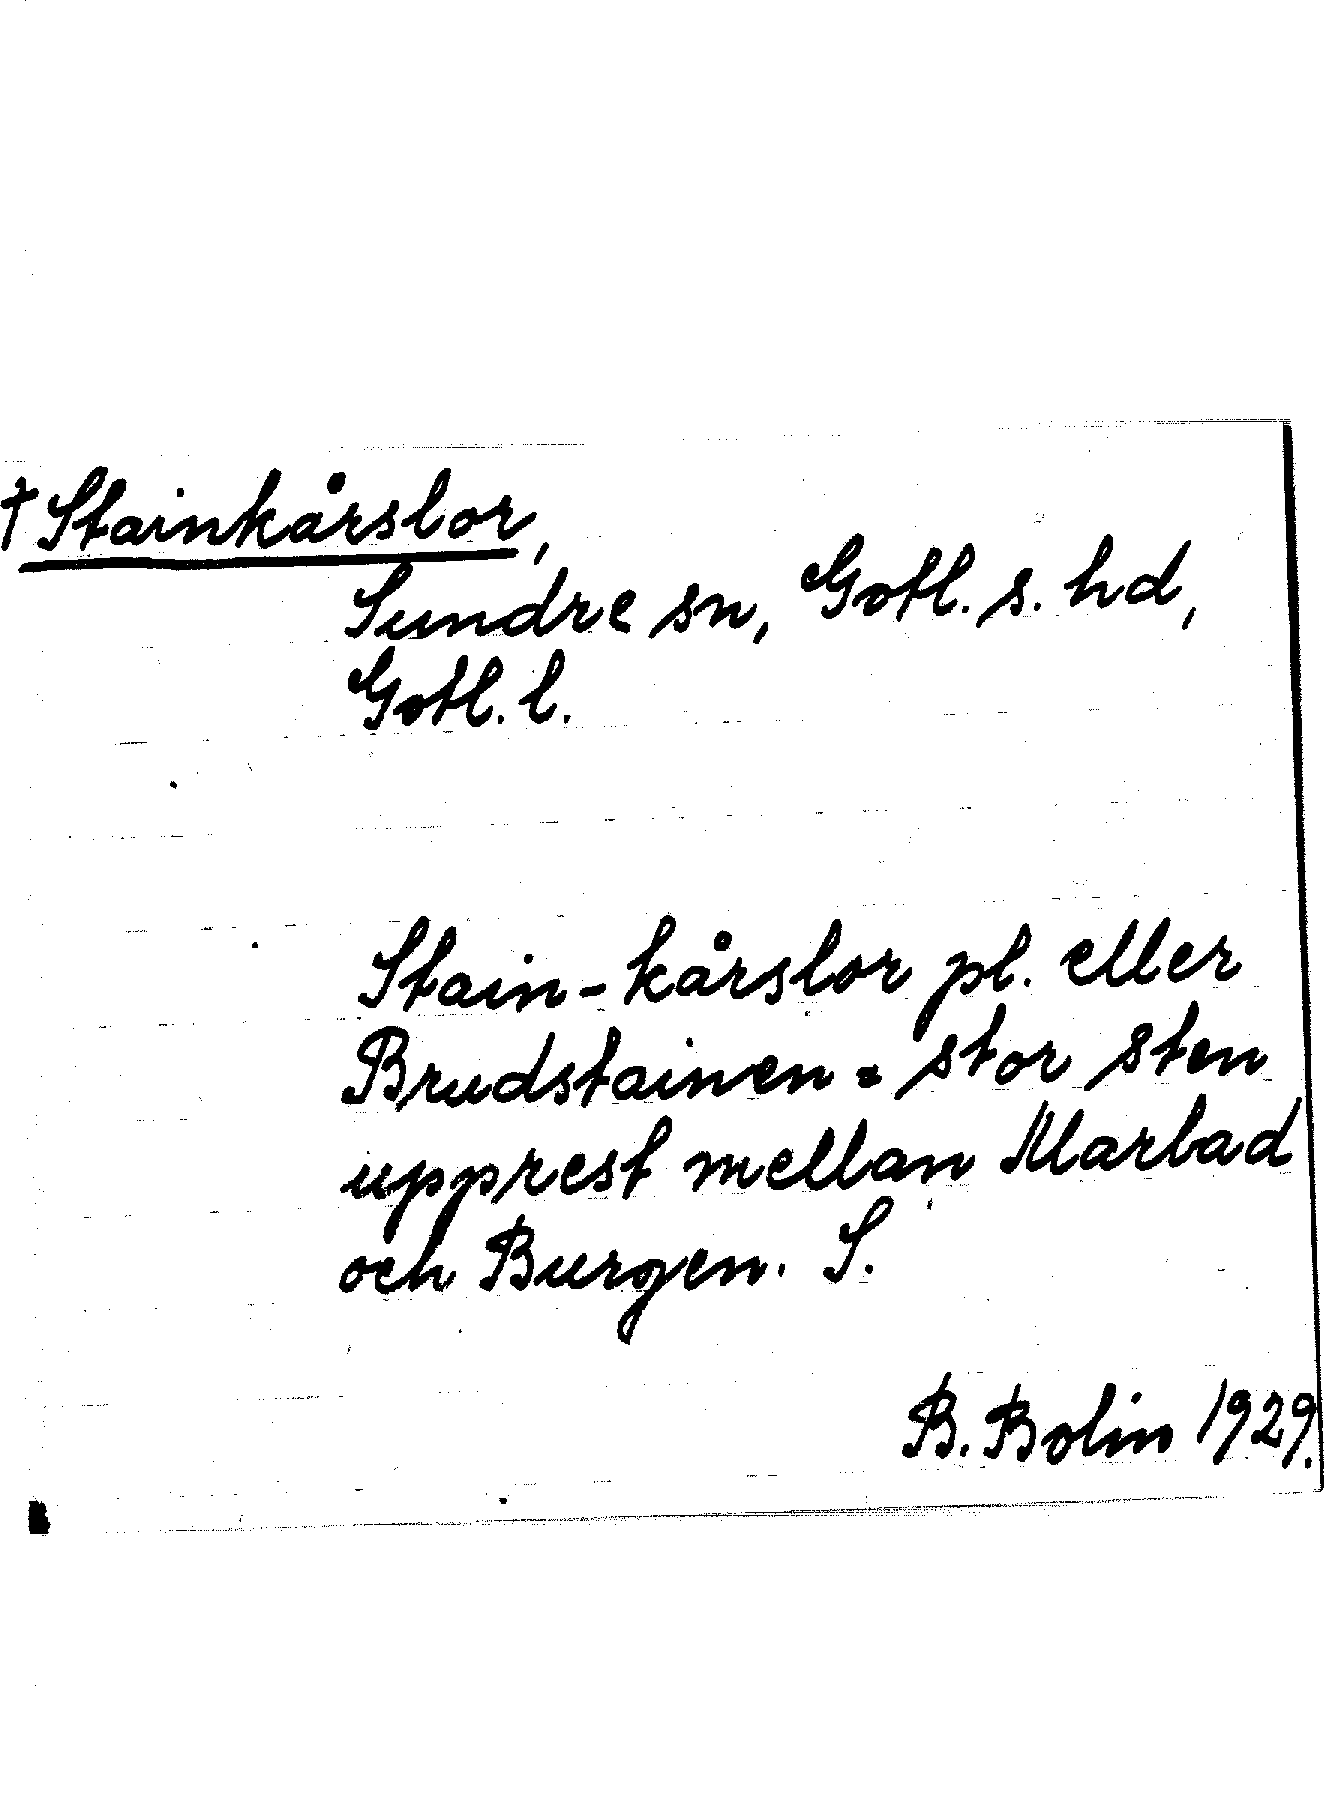 † Stainkårslor,
Sundre sn, Gotl. s. hd,
Gotl. l.
Stain-kårslor pl. eller
Brudstainen = stor sten
upprest mellan Marbad
och Burgen. S.
B. Bolin 1929.